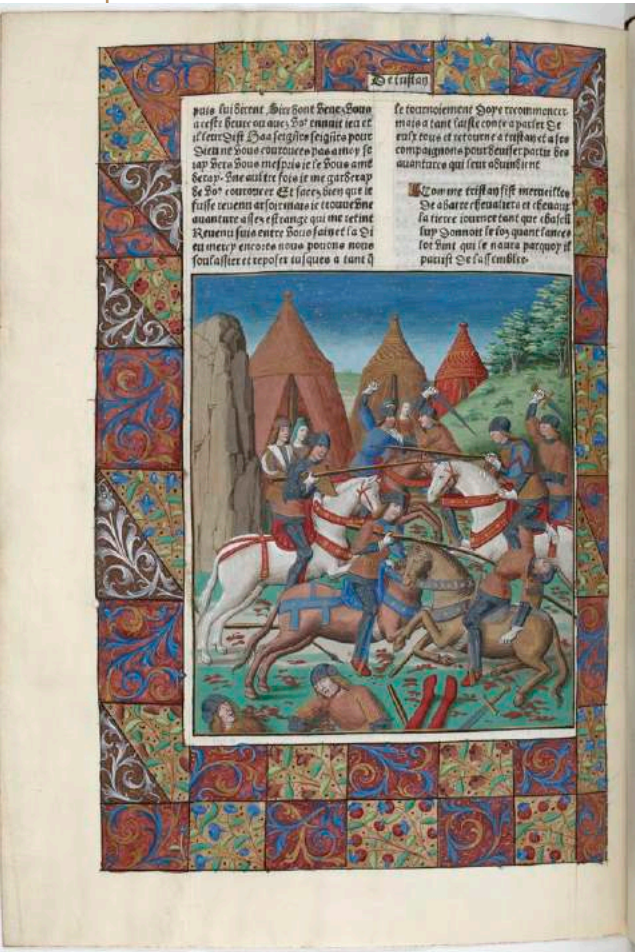 De tristan
puis lui dirent Sire dont venez vous
a ceste heure ou auez vo⁹ ennuit ieu et
il leur dist Haa seigñrs seigñrs pour
dieu ne vous courouces pas a moy se
iay vers vous mespris ie le vous amē
deray. Une aultre fois ie me garderay
de vo⁹ courroucer Et sacez bien que ie
fusse reuenu arsoir mais ie trouue vne
auanture assez estrange qui me retint
Reuenu suis entre vous sain et la di
eu mercy encores nous pouons nous
soulassier et reposer iusques a tant q̄
le tournoiement doye recommencer.
mais a tant laisse le conte a parler de
eulx tous et retourne a tristan et a ses
compaignons pour deuiser partie des
auantures qui leur aduindrent
Comme tristan fist merueilles
de abatre cheualiers et cheuaux
la tierce iournee tant que chascū
luy donnoit le loz quant lance
lot vint qui le naura parquoy il
partist de lassemblee.